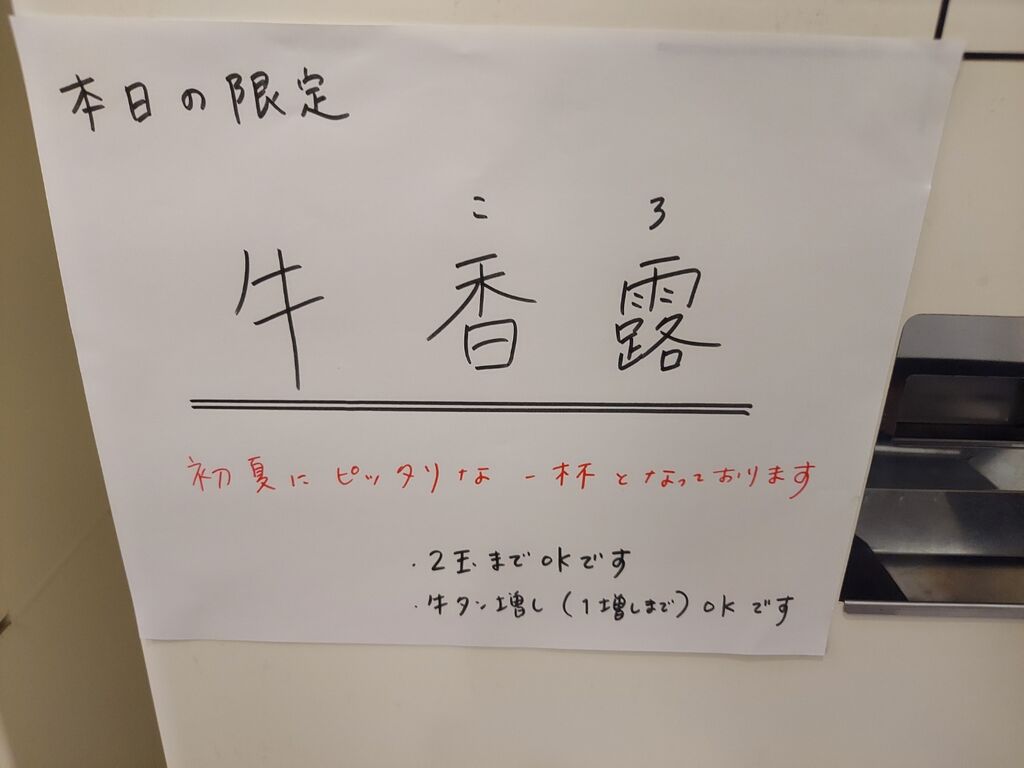 本日の限定
こ ろ
牛 香 露
初夏に ピッタリな 一杯となっております
・2玉までOKです
・牛タン増し(1増しまで)OKです